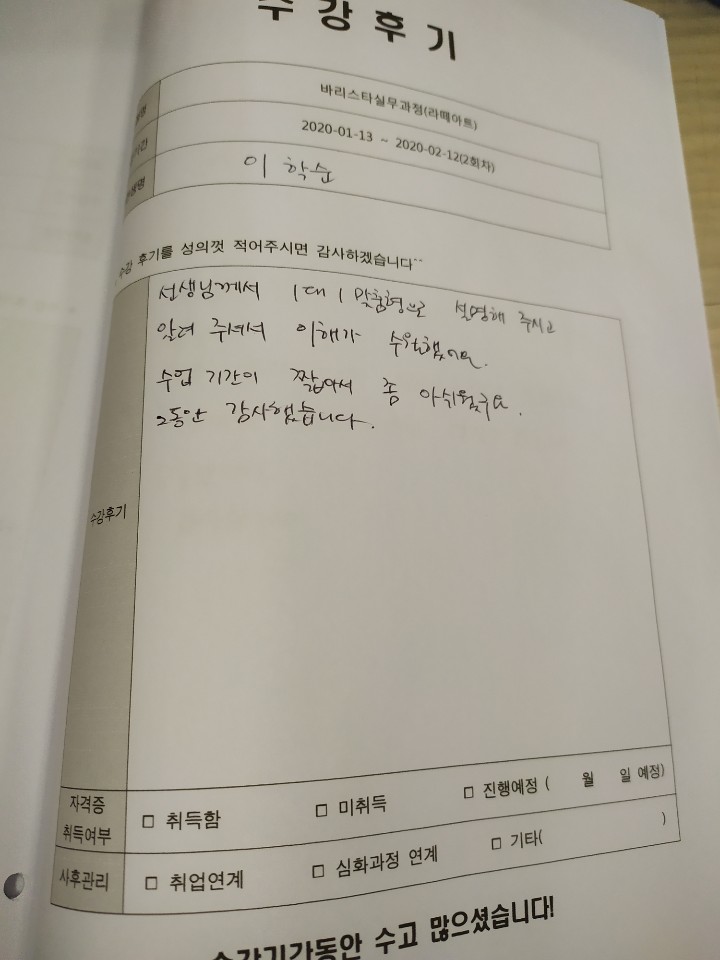 수강후기
바리스타실무과정(라떼아트)
2020-01-13 ~ 2020-02-12(2회차)
이학순
수강 후기를 성의껏 적어주시면 감사하겠습니다^^
선생님께서 1대1 맞춤형으로 설명해 주시고
알려 주셔서 이해가 수월했어요.
수업 기간이 짧아서 좀 아쉬웠구요.
그동안 감사했습니다.
수강후기
자격증 취득여부
□ 취득함 □ 미취득 □ 진행예정 ( 월 일 예정)
사후관리
□ 취업연계 □ 심화과정 연계 □ 기타( )
수강기간동안 수고 많으셨습니다!